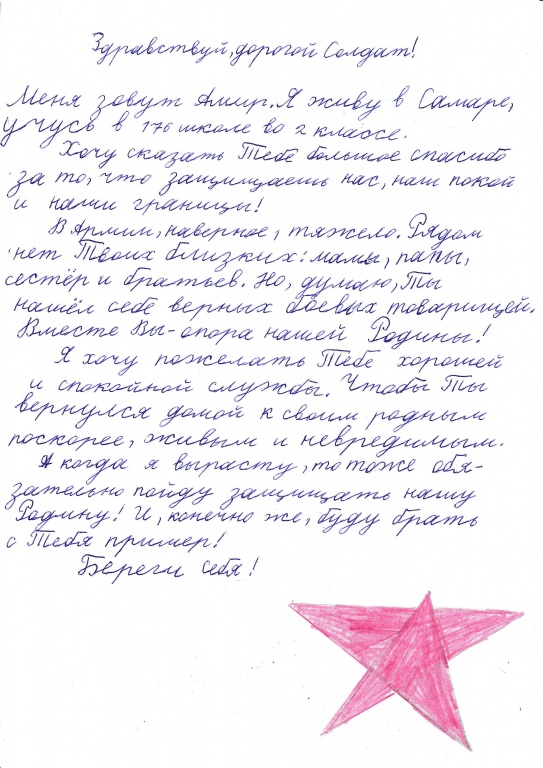 Здравствуй, дорогой Солдат!
Меня зовут Амир. Я живу в Самаре,
учусь в 176 школе во 2 классе.
Хочу сказать Тебе большое спасибо
за то, что защищаешь нас, наш покой
и наши границы!
В Армии, наверное, тяжело. Рядом
нет Твоих близких: мамы, папы,
сестёр и братьев. Но, думаю, Ты
нашёл себе верных боевых товарищей.
Вместе Вы - опора нашей Родины!
Я хочу пожелать Тебе хорошей
и спокойной службы. Чтобы Ты
вернулся домой к своим родным
поскорее, живым и невредимым.
А когда я вырасту, то тоже обя-
зательно пойду защищать нашу
Родину! И, конечно же, буду брать
с Тебя пример!
Береги себя!